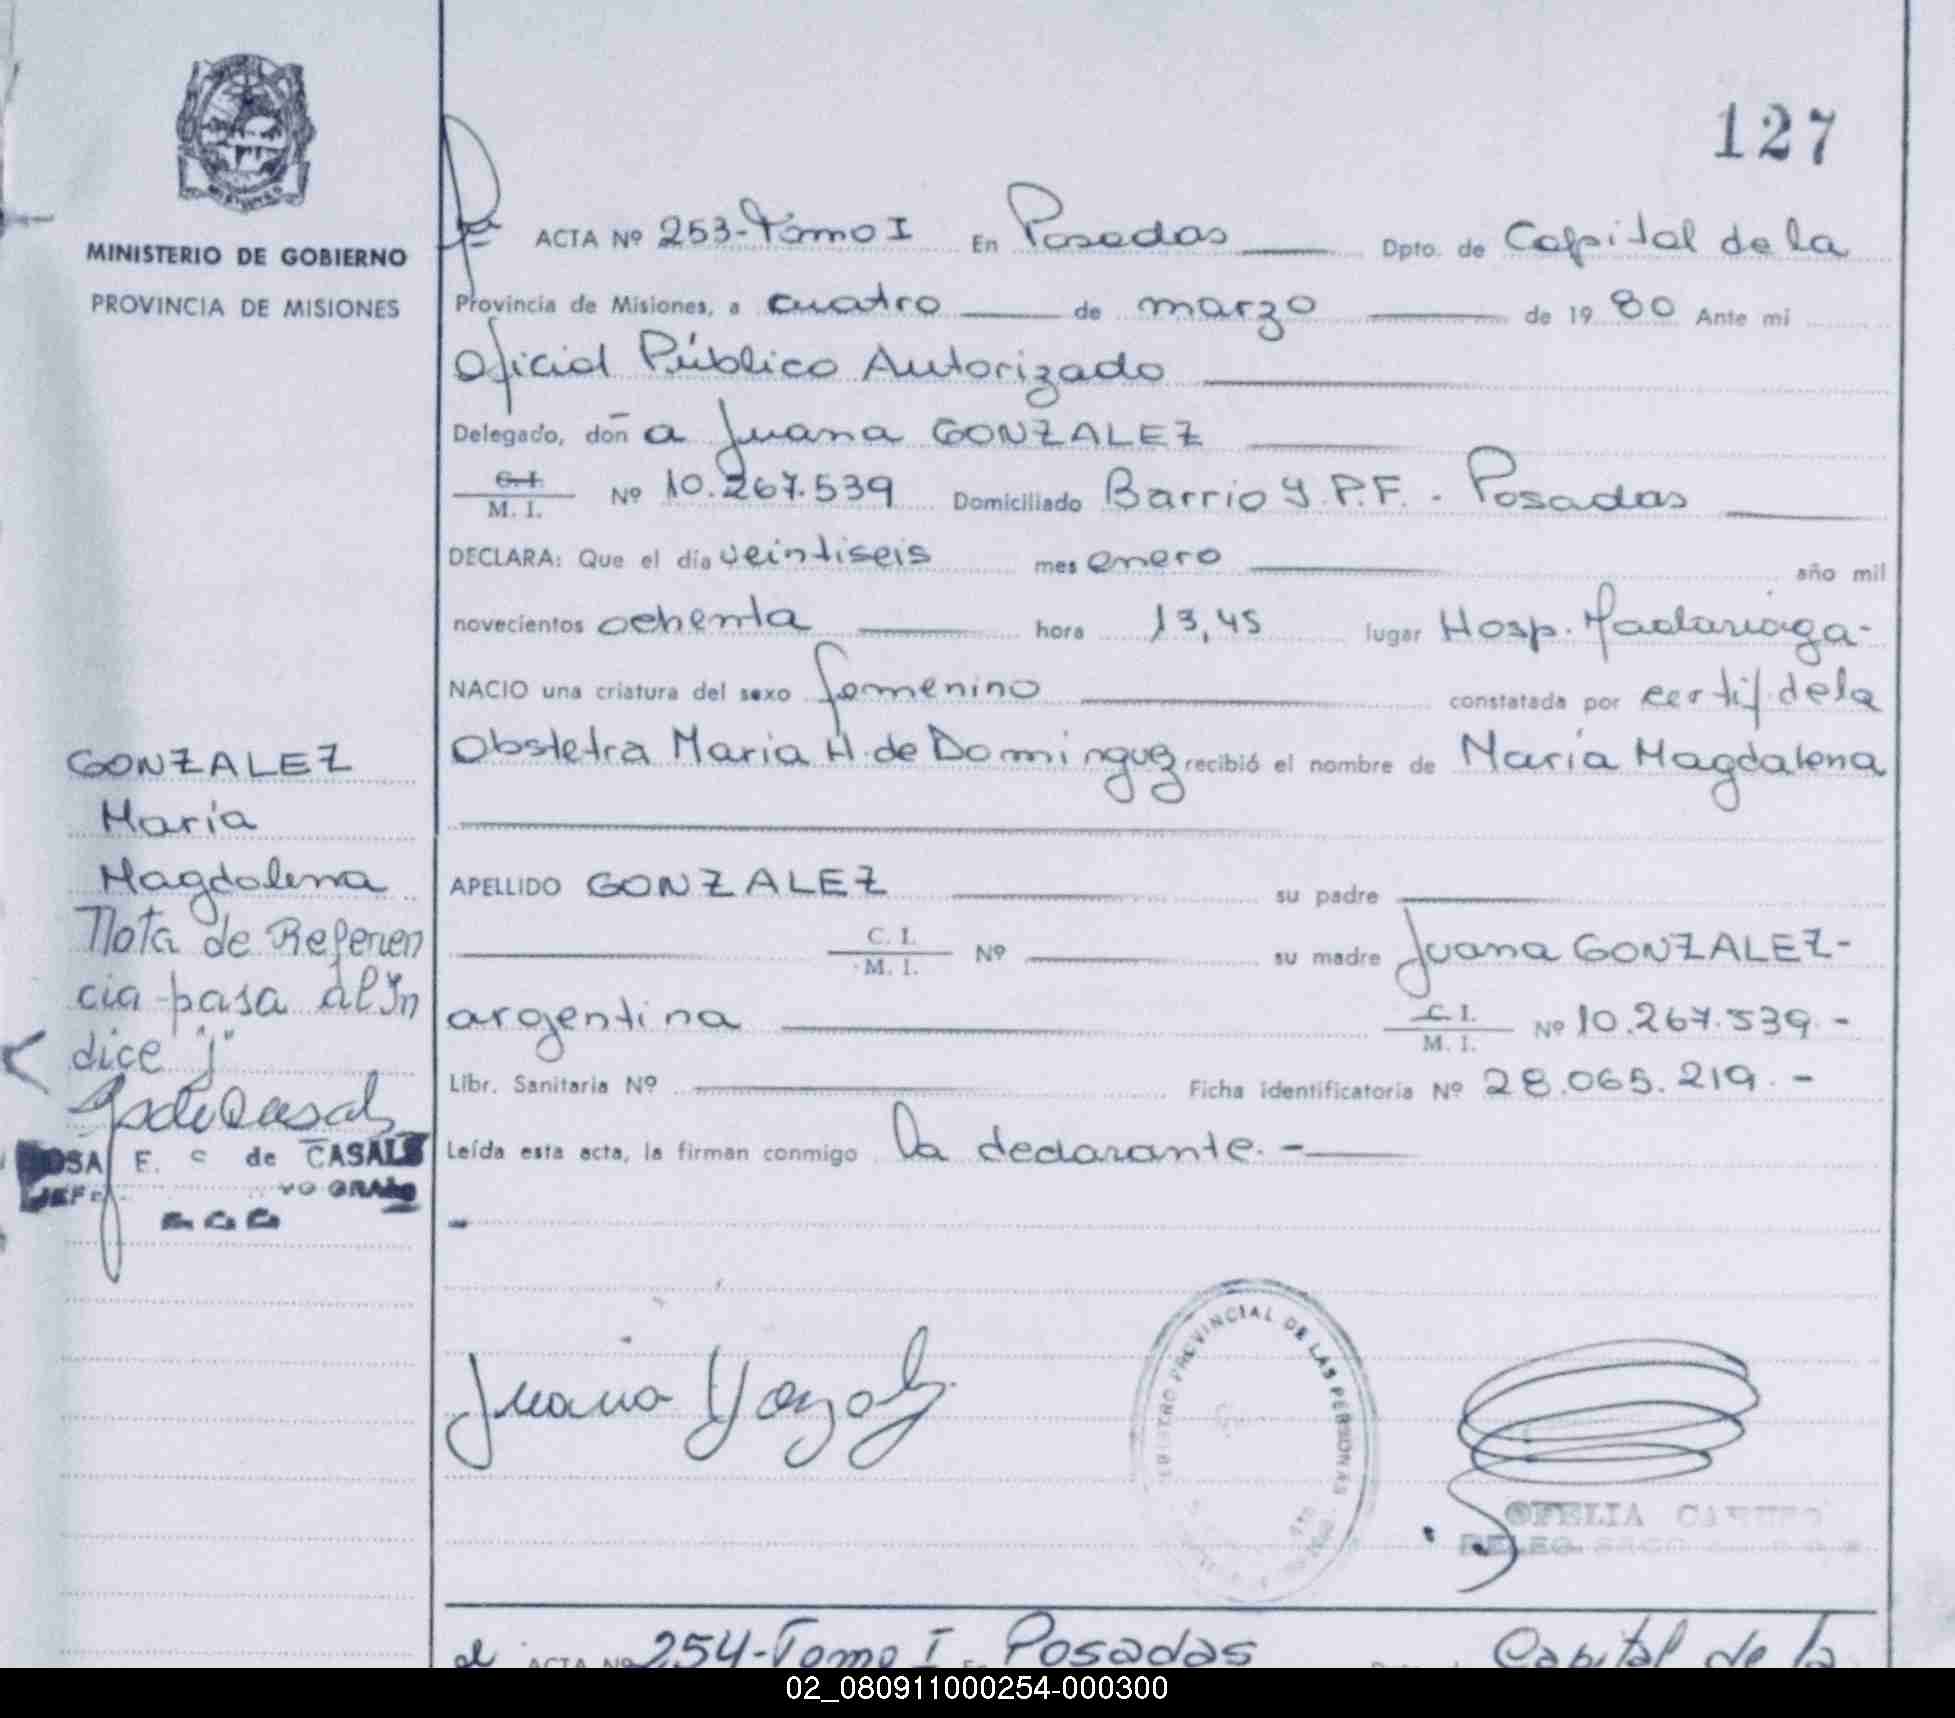 127
MINISTERIO DE GOBIERNO
PROVINCIA DE MISIONES
ACTA Nº 253-Tomo I En Posadas Dpto. de Capital de la
Provincia de Misiones, a cuatro de marzo de 1980 Ante mi
Oficial Público Autorizado
Delegado, doña Juana GONZALEZ
C.I.
M. I. Nº 10.267.539 Domiciliado Barrio Y.P.F. - Posadas
DECLARA: Que el día veintiseis mes enero año mil
novecientos ochenta hora 13,45 lugar Hosp. Madariaga-
NACIO una criatura del sexo femenino constatada por certif. de la
Obstetra Maria H. de Dominguez recibió el nombre de María Magdalena
APELLIDO GONZALEZ su padre
C. I.
M. I. Nº su madre Juana GONZALEZ-
argentina C. I.
M. I. Nº 10.267.539.-
Libr. Sanitaria Nº Ficha identificatoria Nº 28.065.219.-
Leída esta acta, la firman conmigo la declarante.-
GONZALEZ
María
Magdalena
Nota de Referen
cia pasa al Yn
dice "J"
OSA E. C de CASALS
JEF
Juana Gonzalez
REGISTRO PROVINCIAL DE LAS PERSONAS
OFELIA
DELEG
ACTA Nº 254-Tomo I En Posadas Capital de la
02_080911000254-000300